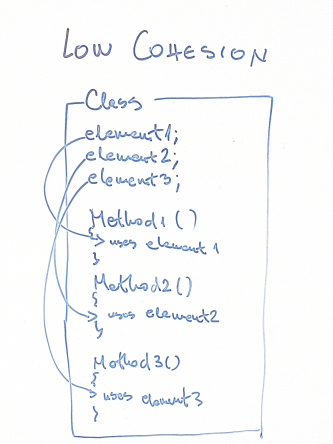 LOW COHESION
Class
element1;
element2;
element3;
Method1()
{
uses element1
}
Method2()
{
uses element2
}
Method3()
{
uses element3
}